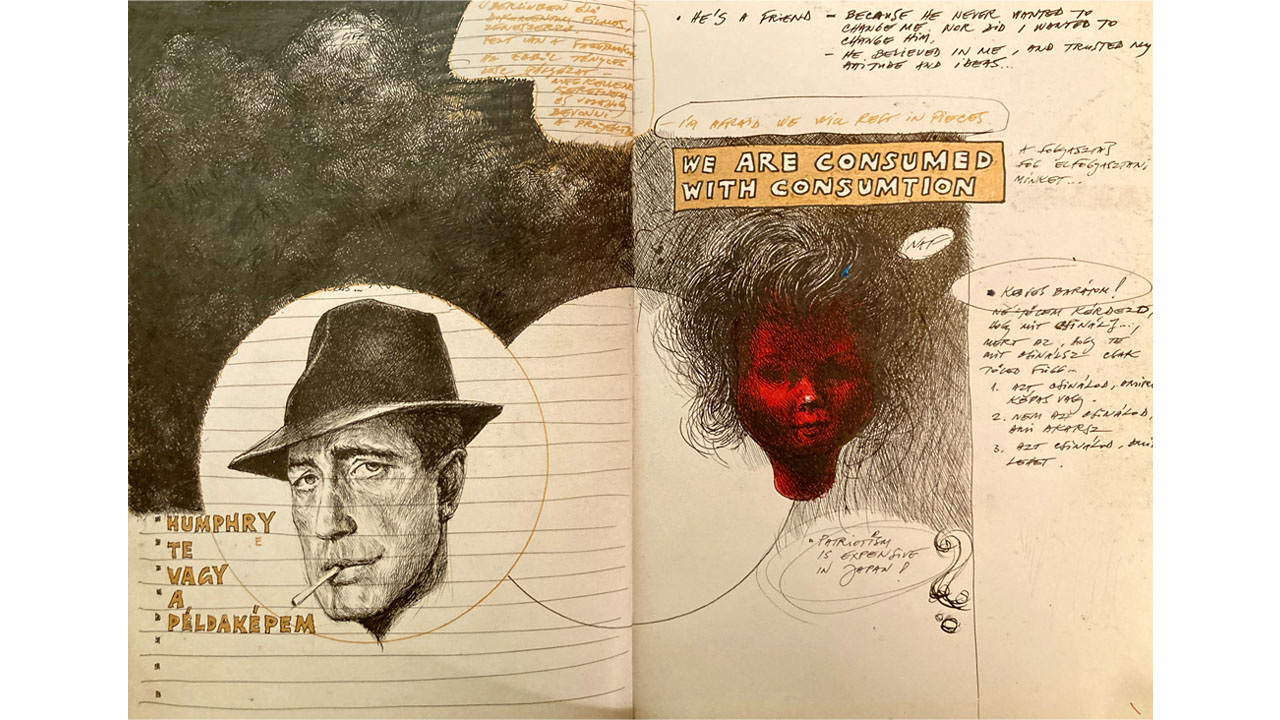 BERLINBEN ÉLŐ
FILMES,
ZENESZERZŐ.
FENT VAN A FACEBOOKON
DEVONNI
A PROJEKTBE
HUMPHRY
E
TE
VAGY
A
PÉLDAKÉPEM
• HE'S A FRIEND – BECAUSE HE NEVER WANTED TO
CHANGE ME, NOR DID I WANTED TO
CHANGE HIM.
– HE BELIEVED IN ME, AND TRUSTED MY
ATTITUDE AND IDEAS...
– I'M AFRAID WE WILL REST IN PIECES.
WE ARE CONSUMED
WITH CONSUMTION
A FOGYASZTÁS
FOG ELFOGYASZTANI
MINKET...
NAF
• KEDVES BARÁTOM!
NE TŐLEM KÉRDEZD,
HOGY MIT CSINÁLJ...,
MERT AZ, HOGY TE
MIT CSINÁLSZ CSAK
TŐLED FÜGG...
1. AZT CSINÁLOD, AMIRE
KÉPES VAGY.
2. NEM AZT CSINÁLOD,
AMI AKARSZ
3. AZT CSINÁLOD, AMI
LEHET.
• PATRIOTISM
IS EXPENSIVE
IN JAPAN!